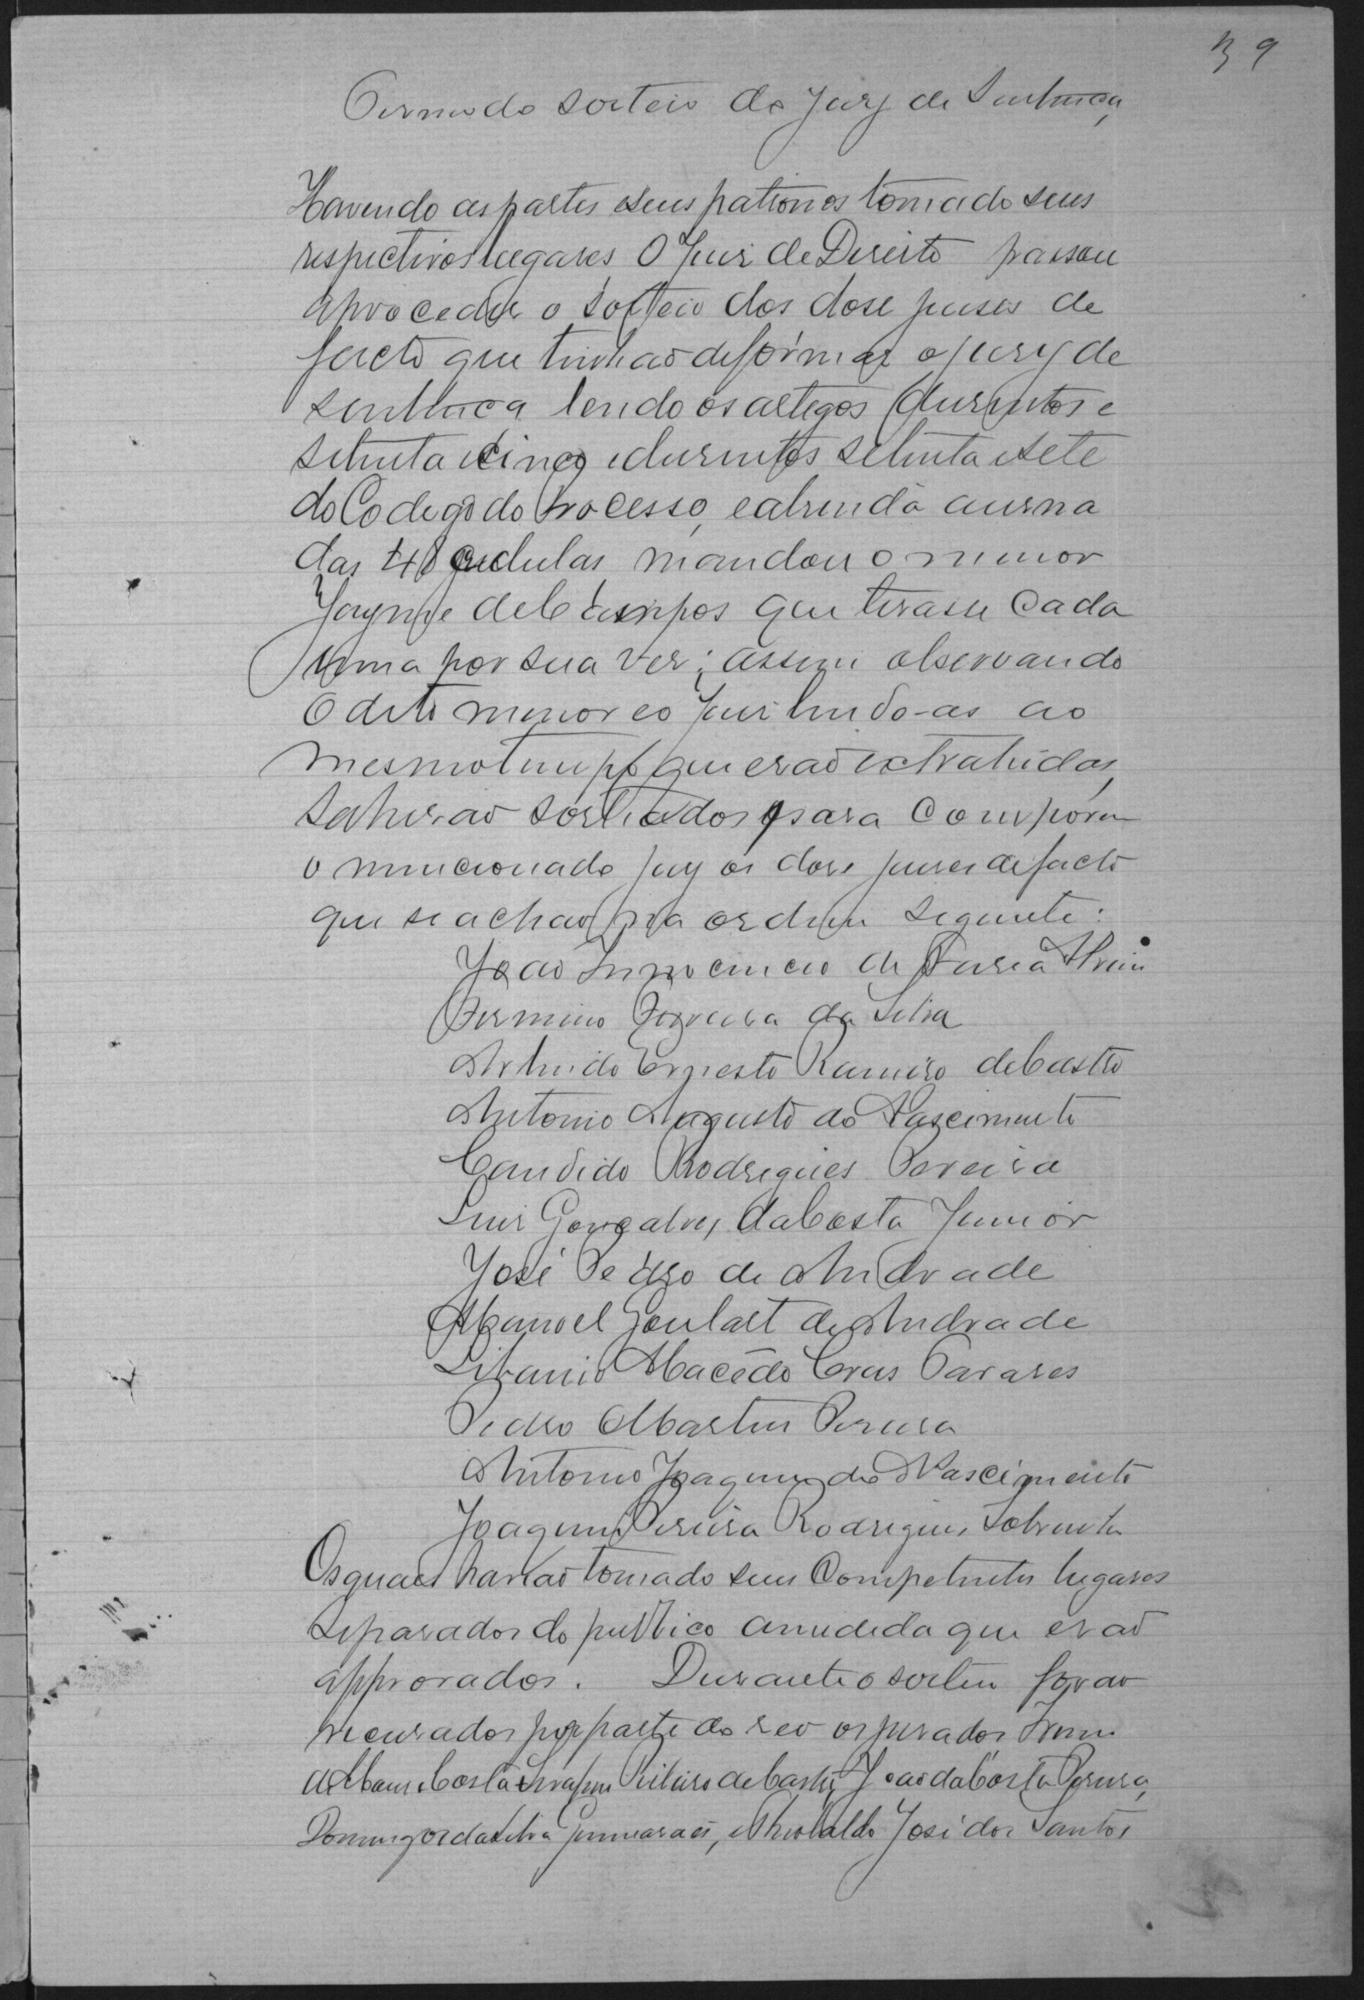 39
Termo do sorteio do Jury de Sentença
Havendo as partes e seus patronos tomado seus
respectivos lugares O Juiz de Direito passou
aproceder o sorteio dos dose juises de
facto que tinhão deformar o jury de
sentença lendo os artegos dusentos e
setenta e cinco e dusentos setenta e sete
do Codego do Processo, e abrindo a urna
das 48 cedulas mandou o menor
Jayme de Campos que tirasse cada
uma por sua vez; assim observando
O dito menor e o Juiz lendo-as ao
mesmo tempo que erão extrahidas,
Sahirão sorteados para comporem
o mencionado jury os dose juises de facto
que se achão na ordem seguinte:
João Innocencio de Faria Alvim
Firmino Ferreira da Silva
Arlindo Ernesto Ramiro de Castro
Antonio Augusto do Nascimento
Candido Rodrigues Pereira
Luiz Gonçalves da Costa Junior
José Pedro de Andrade
Manoel Goulart de Andrade
Libanio Macêdo Crus Tavares
Pedro Martins Pereira
Antonio Joaquim do Nascimento
Joaquim Pereira Rodrigues Sobrinho
Os quaes havião tomado seus Competentes lugares
separados do publico a medida que erão
approvados. Durante o sorteio forão
recusados por parte do reo os jurados
Costa Serafim Ribeiro de Castro, João da Costa Pereira,
Domingos da Silva Guimarães, e Theobaldo José dos Santos